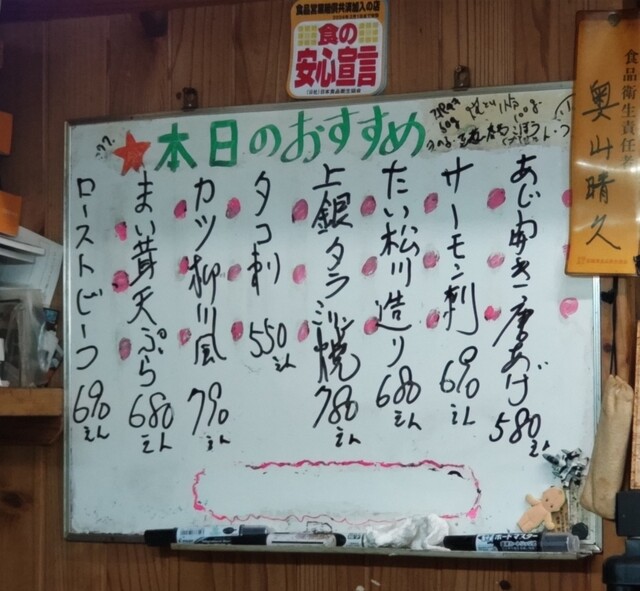 食品営業賠償共済加入の店
食の
安心宣言
(公社)日本食品衛生協会
食品衛生責任者
奥山晴久
★本日のおすすめ
あじ開き唐あげ 580えん
サーモン刺 690えん
たい松川造り 680えん
上銀タラ 焼 780えん
タコ刺 550えん
カツ柳川風 790えん
まい茸天ぷら 680えん
ローストビーフ 690えん
ボードマスター